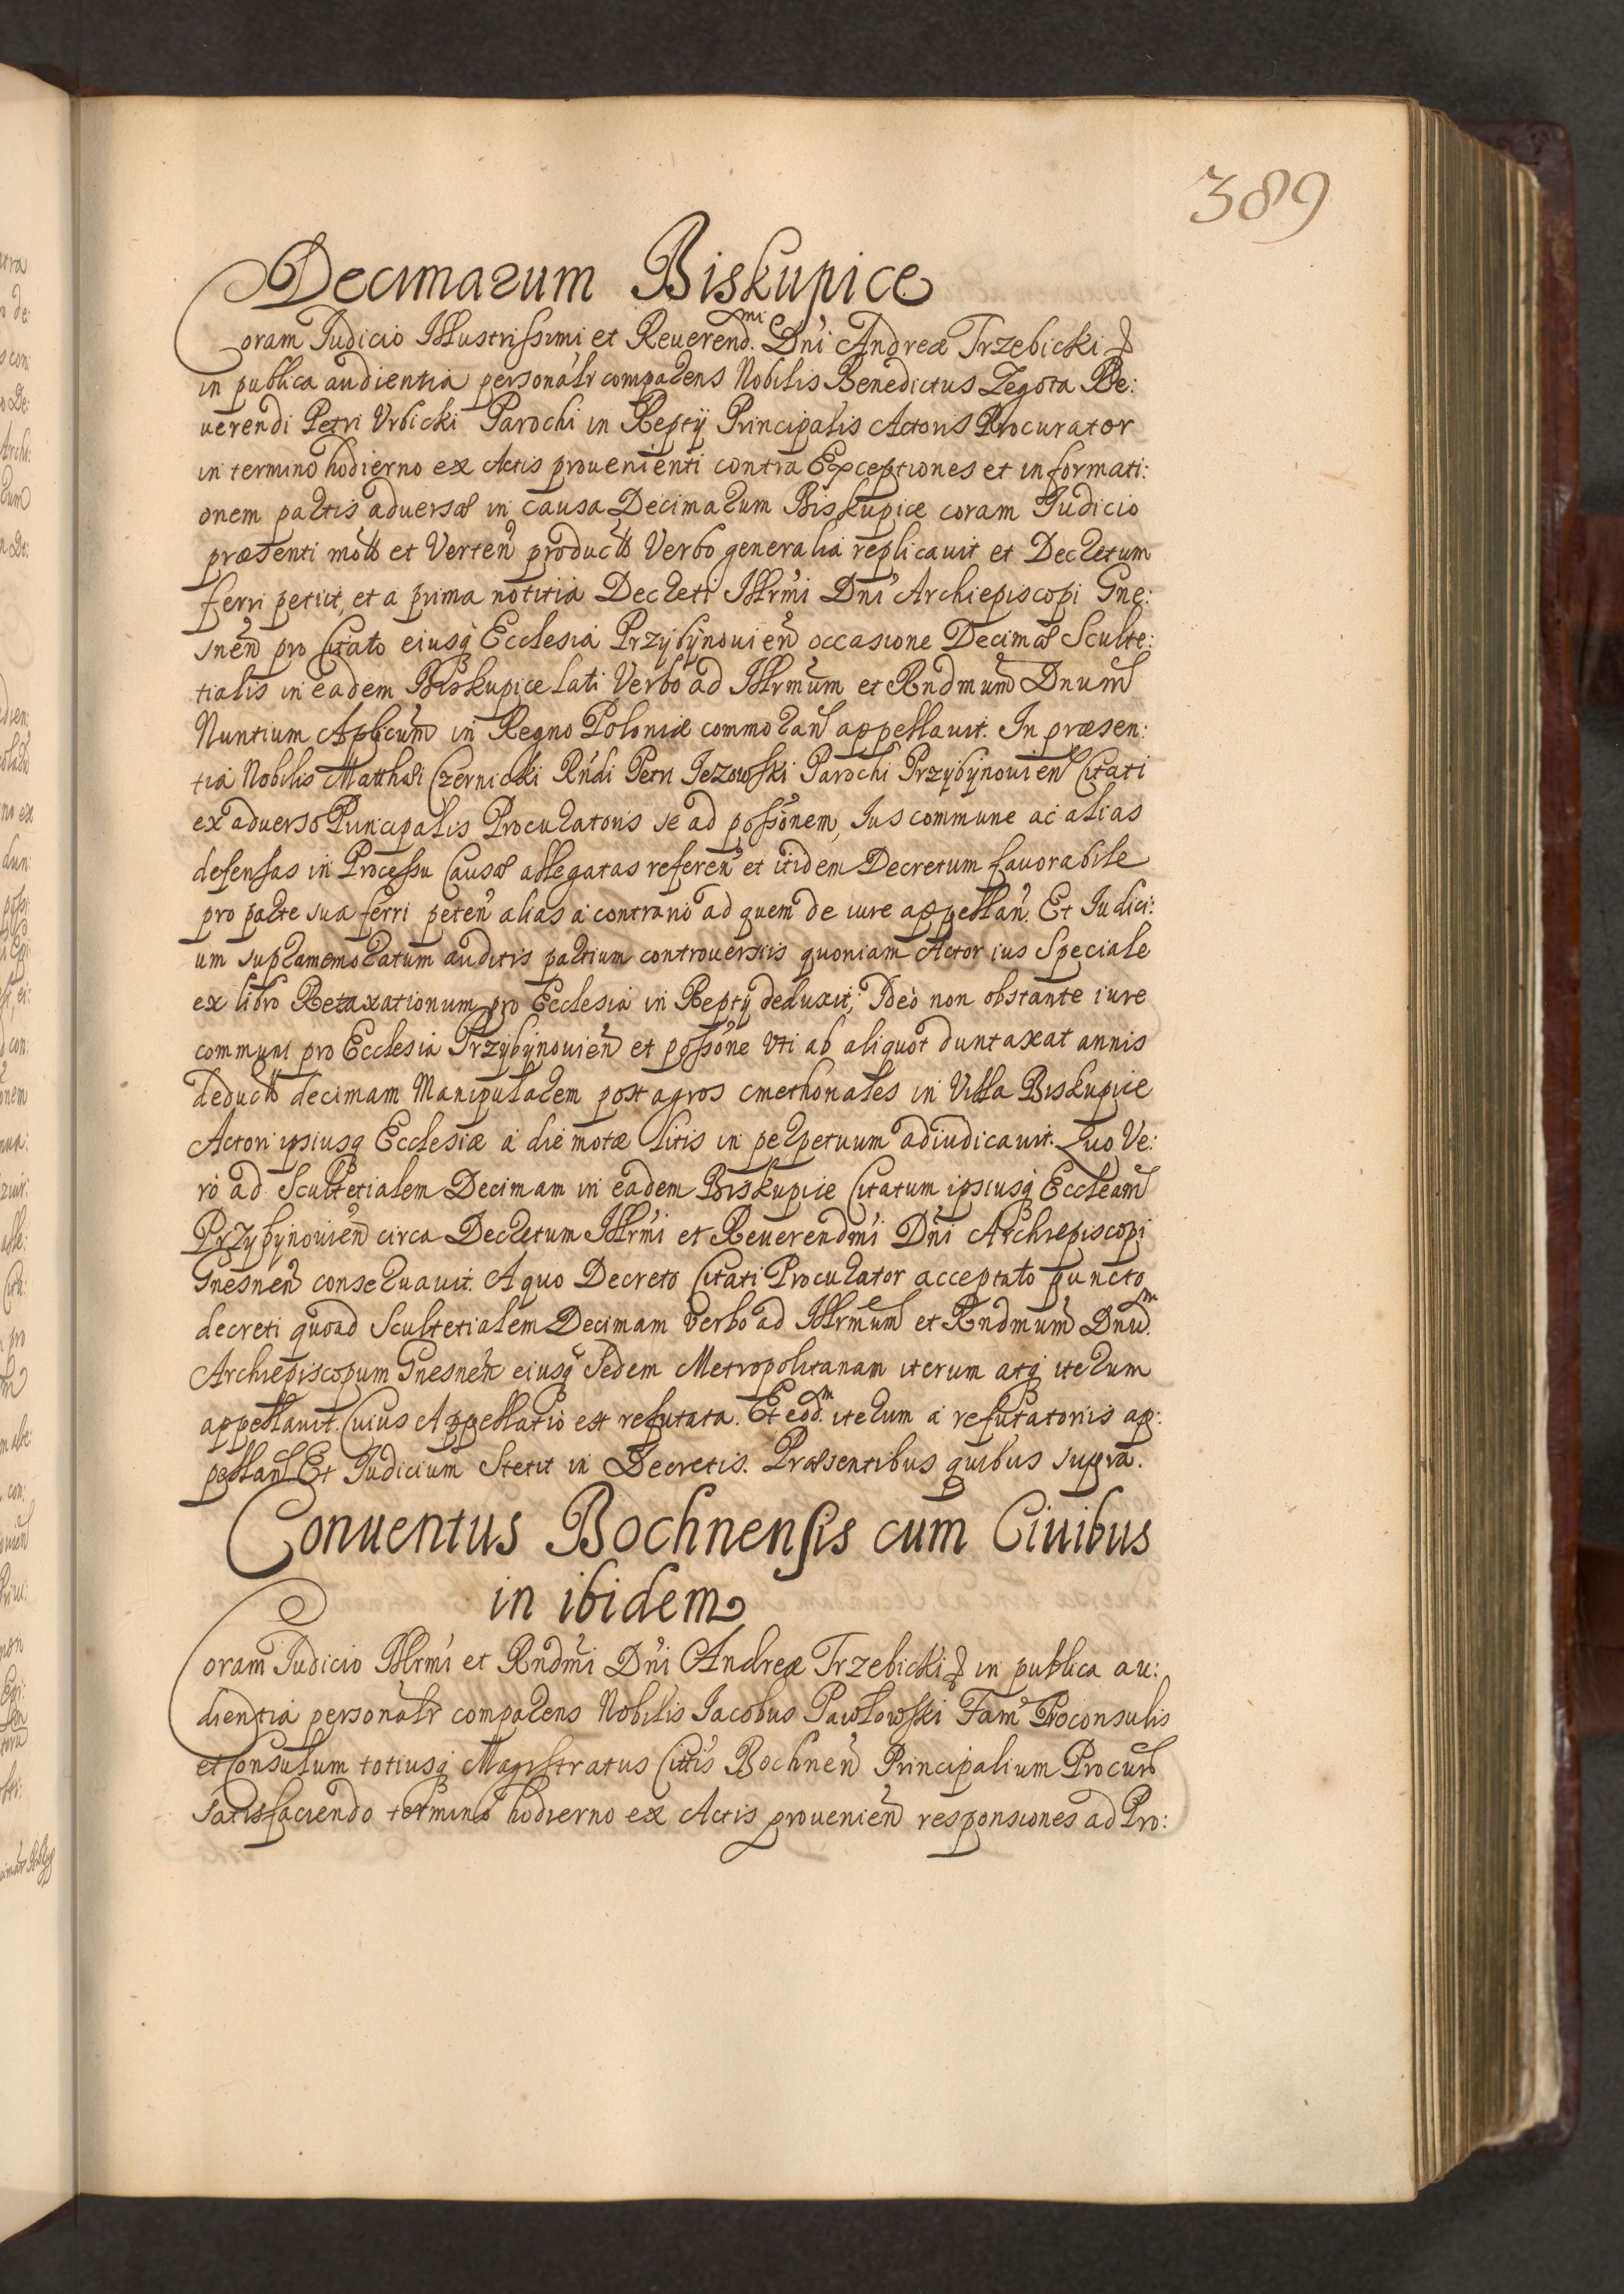 389
Decimarum Biskupice
Coram Judicio Illustrissimi et Reuerend.mi Dni Andreæ Trzebicki &
in publica audientia personalr comparens Nobilis Benedictus Zegota Re:
uerendi Petri Vrbicki Parochi in Repty Principalis Actoris Procurator
in termino hodierno ex Actis prouenienti contra Exceptiones et informati:
onem partis aduersæ in causa Decimarum Biskupice coram Judicio
præsenti mott et Verten product Verbo generalia replicauit et Decretum
ferri petiit, et a prima notitia Decreti Illrmi Dni Archiepiscopi Gne:
snen pro Citato eiusq Ecclesia Przybynouien occasione Decimæ Sculte:
tialis in eadem Biskupice lati Verbo ad Illrmum et Rndmum Dnum
Nuntium Aplicum in Regno Poloniæ commoran appellauit. In præsen:
tia Nobilis Matthæi Czernicki Rndi Petri Jezowski Parochi Przybynouien Citati
ex aduerso Principalis Procuratoris se ad possonem, Ius commune ac alias
defensas in Processu Causæ allegatas referen et itidem Decretum fauorabile
pro parte sua ferri peten alias a contrario ad quem de iure appellan. Et Iudici:
um supramemoratum auditis partium controuersiis quoniam Actor ius Speciale
ex libro Retaxationum pro Ecclesia in Repty deduxit; Ideo non obstante iure
communi pro Ecclesia Przybynouien et possone Vti ab aliquot duntaxat annis
deduct decimam Manipularem post agros cmethonales in Villa Biskupice
Actori ipsiusq Ecclesiæ a die motæ litis in perpetuum adiudicauit. Quo Ve:
ro ad Scultetialem Decimam in eadem Biskupice Citatum ipsiusq Eccleam
Przybynouien circa Decretum Illrmi et Reuerendmi Dni Archiepiscopi
Gnesnen conseruauit. A quo Decreto Citati Procurator acceptato puncto
decreti quoad Scultetialem Decimam Verbo ad Illrmum et Rndmum Dnu.m
Archiepiscopum Gnesnen eiusq Sedem Metropolitanam iterum atq iterum
appellauit. Cuius Appellatio est refutata. Et eod.m iterum a refutatoriis ap:
pellan Et Judicium Stetit in Decretis. Præsentibus quibus supra.
Conuentus Bochnensis cum Ciuibus
in ibidem
Coram Judicio Illrmi et Rndmi Dni Andreæ Trzebicki & in publica au:
dientia personalr comparens Nobilis Jacobus Pawlowski Fam Proconsulis
et Consulum totiusq Magistratus Cittis Bochnen Principalium Procur
Satisfaciendo termino hodierno ex Actis prouenien responsiones ad Pro: